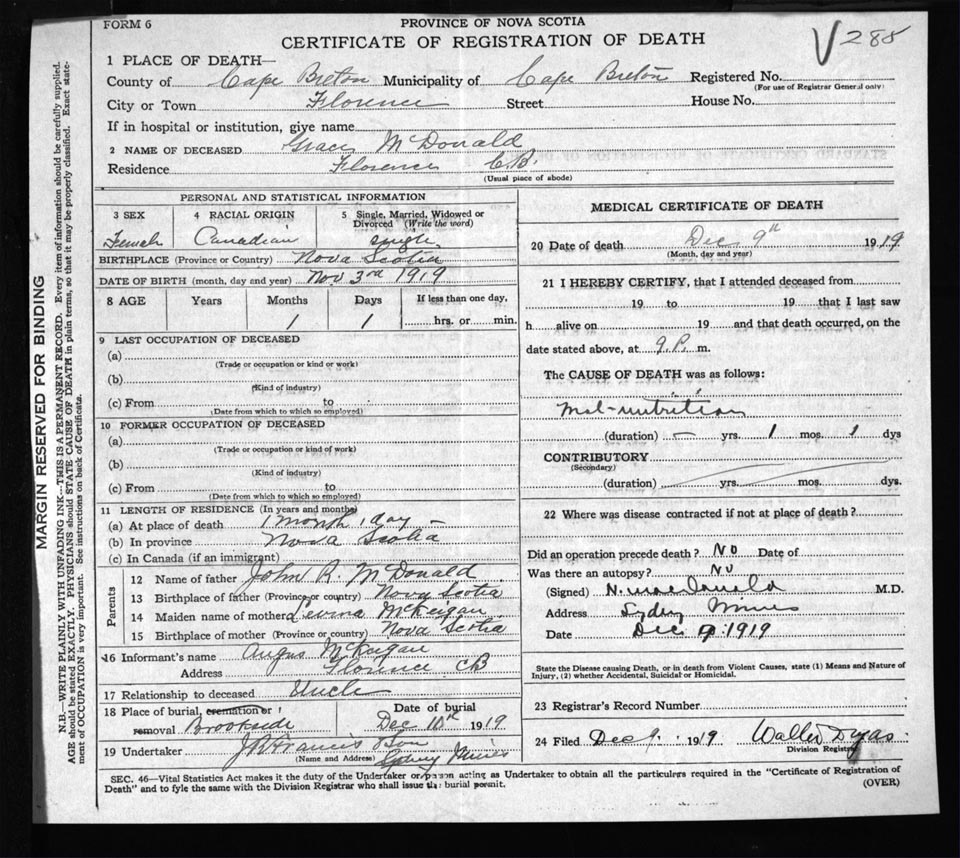 FORM 6
PROVINCE OF NOVA SCOTIA
CERTIFICATE OF REGISTRATION OF DEATH
285
1 PLACE OF DEATH—
County of Cape Breton Municipality of Cape Breton Registered No.
(For use of Registrar General only)
City or Town Florence Street House No.
If in hospital or institution, give name
2 NAME OF DECEASED Grace McDonald
Residence Florence C.B.
(Usual place of abode)
PERSONAL AND STATISTICAL INFORMATION
3 SEX 4 RACIAL ORIGIN 5 Single, Married, Widowed or
Divorced (Write the word)
Female Canadian single
BIRTHPLACE (Province or Country) Nova Scotia
DATE OF BIRTH (month, day and year) Nov 3rd 1919
8 AGE Years Months Days If less than one day,
1 1 hrs. or min.
9 LAST OCCUPATION OF DECEASED
(a)
(Trade or occupation or kind or work)
(b)
(Kind of industry)
(c) From to
(Date from which to which so employed)
10 FORMER OCCUPATION OF DECEASED
(a)
(Trade or occupation or kind of work)
(b)
(Kind of industry)
(c) From to
(Date from which to which so employed)
11 LENGTH OF RESIDENCE (In years and months)
(a) At place of death 1 month 1 day —
(b) In province Nova Scotia
(c) In Canada (if an immigrant)
Parents
12 Name of father John R. McDonald
13 Birthplace of father (Province or country) Nova Scotia
14 Maiden name of mother McKeigan
15 Birthplace of mother (Province or country) Nova Scotia
16 Informant's name Angus McKeigan
Address Florence CB
17 Relationship to deceased Uncle
18 Place of burial, cremation or Date of burial
removal Brookside Dec 10th 1919
19 Undertaker J.R. Francis & Son
(Name and Address) Sydney Mines
MEDICAL CERTIFICATE OF DEATH
20 Date of death Dec 9th 1919
(Month, day and year)
21 I HEREBY CERTIFY, that I attended deceased from
19 to 19 that I last saw
h alive on 19 and that death occurred, on the
date stated above, at 9 P. m.
The CAUSE OF DEATH was as follows:
Mal-nutrition
(duration) — yrs. 1 mos. 1 dys
CONTRIBUTORY
(Secondary)
(duration) yrs. mos. dys.
22 Where was disease contracted if not at place of death?
Did an operation precede death? No Date of
Was there an autopsy? No
(Signed) M.D.
Address Sydney Mines
Date Dec 9 1919
State the Disease causing Death, or in death from Violent Causes, state (1) Means and Nature of
Injury, (2) whether Accidental, Suicidal or Homicidal.
23 Registrar's Record Number
24 Filed Dec 9 1919 Walter Dyas
Division Registrar
SEC. 46—Vital Statistics Act makes it the duty of the Undertaker or person acting as Undertaker to obtain all the particulars required in the "Certificate of Registration of
Death" and to fyle the same with the Division Registrar who shall issue the burial permit. (OVER)
MARGIN RESERVED FOR BINDING
N.B.—WRITE PLAINLY WITH UNFADING INK—THIS IS A PERMANENT RECORD. Every item of information should be carefully supplied.
AGE should be stated EXACTLY. PHYSICIANS should STATE CAUSE OF DEATH in plain terms, so that it may be properly classified. Exact state-
ment of OCCUPATION is very important. See instructions on back of Certificate.